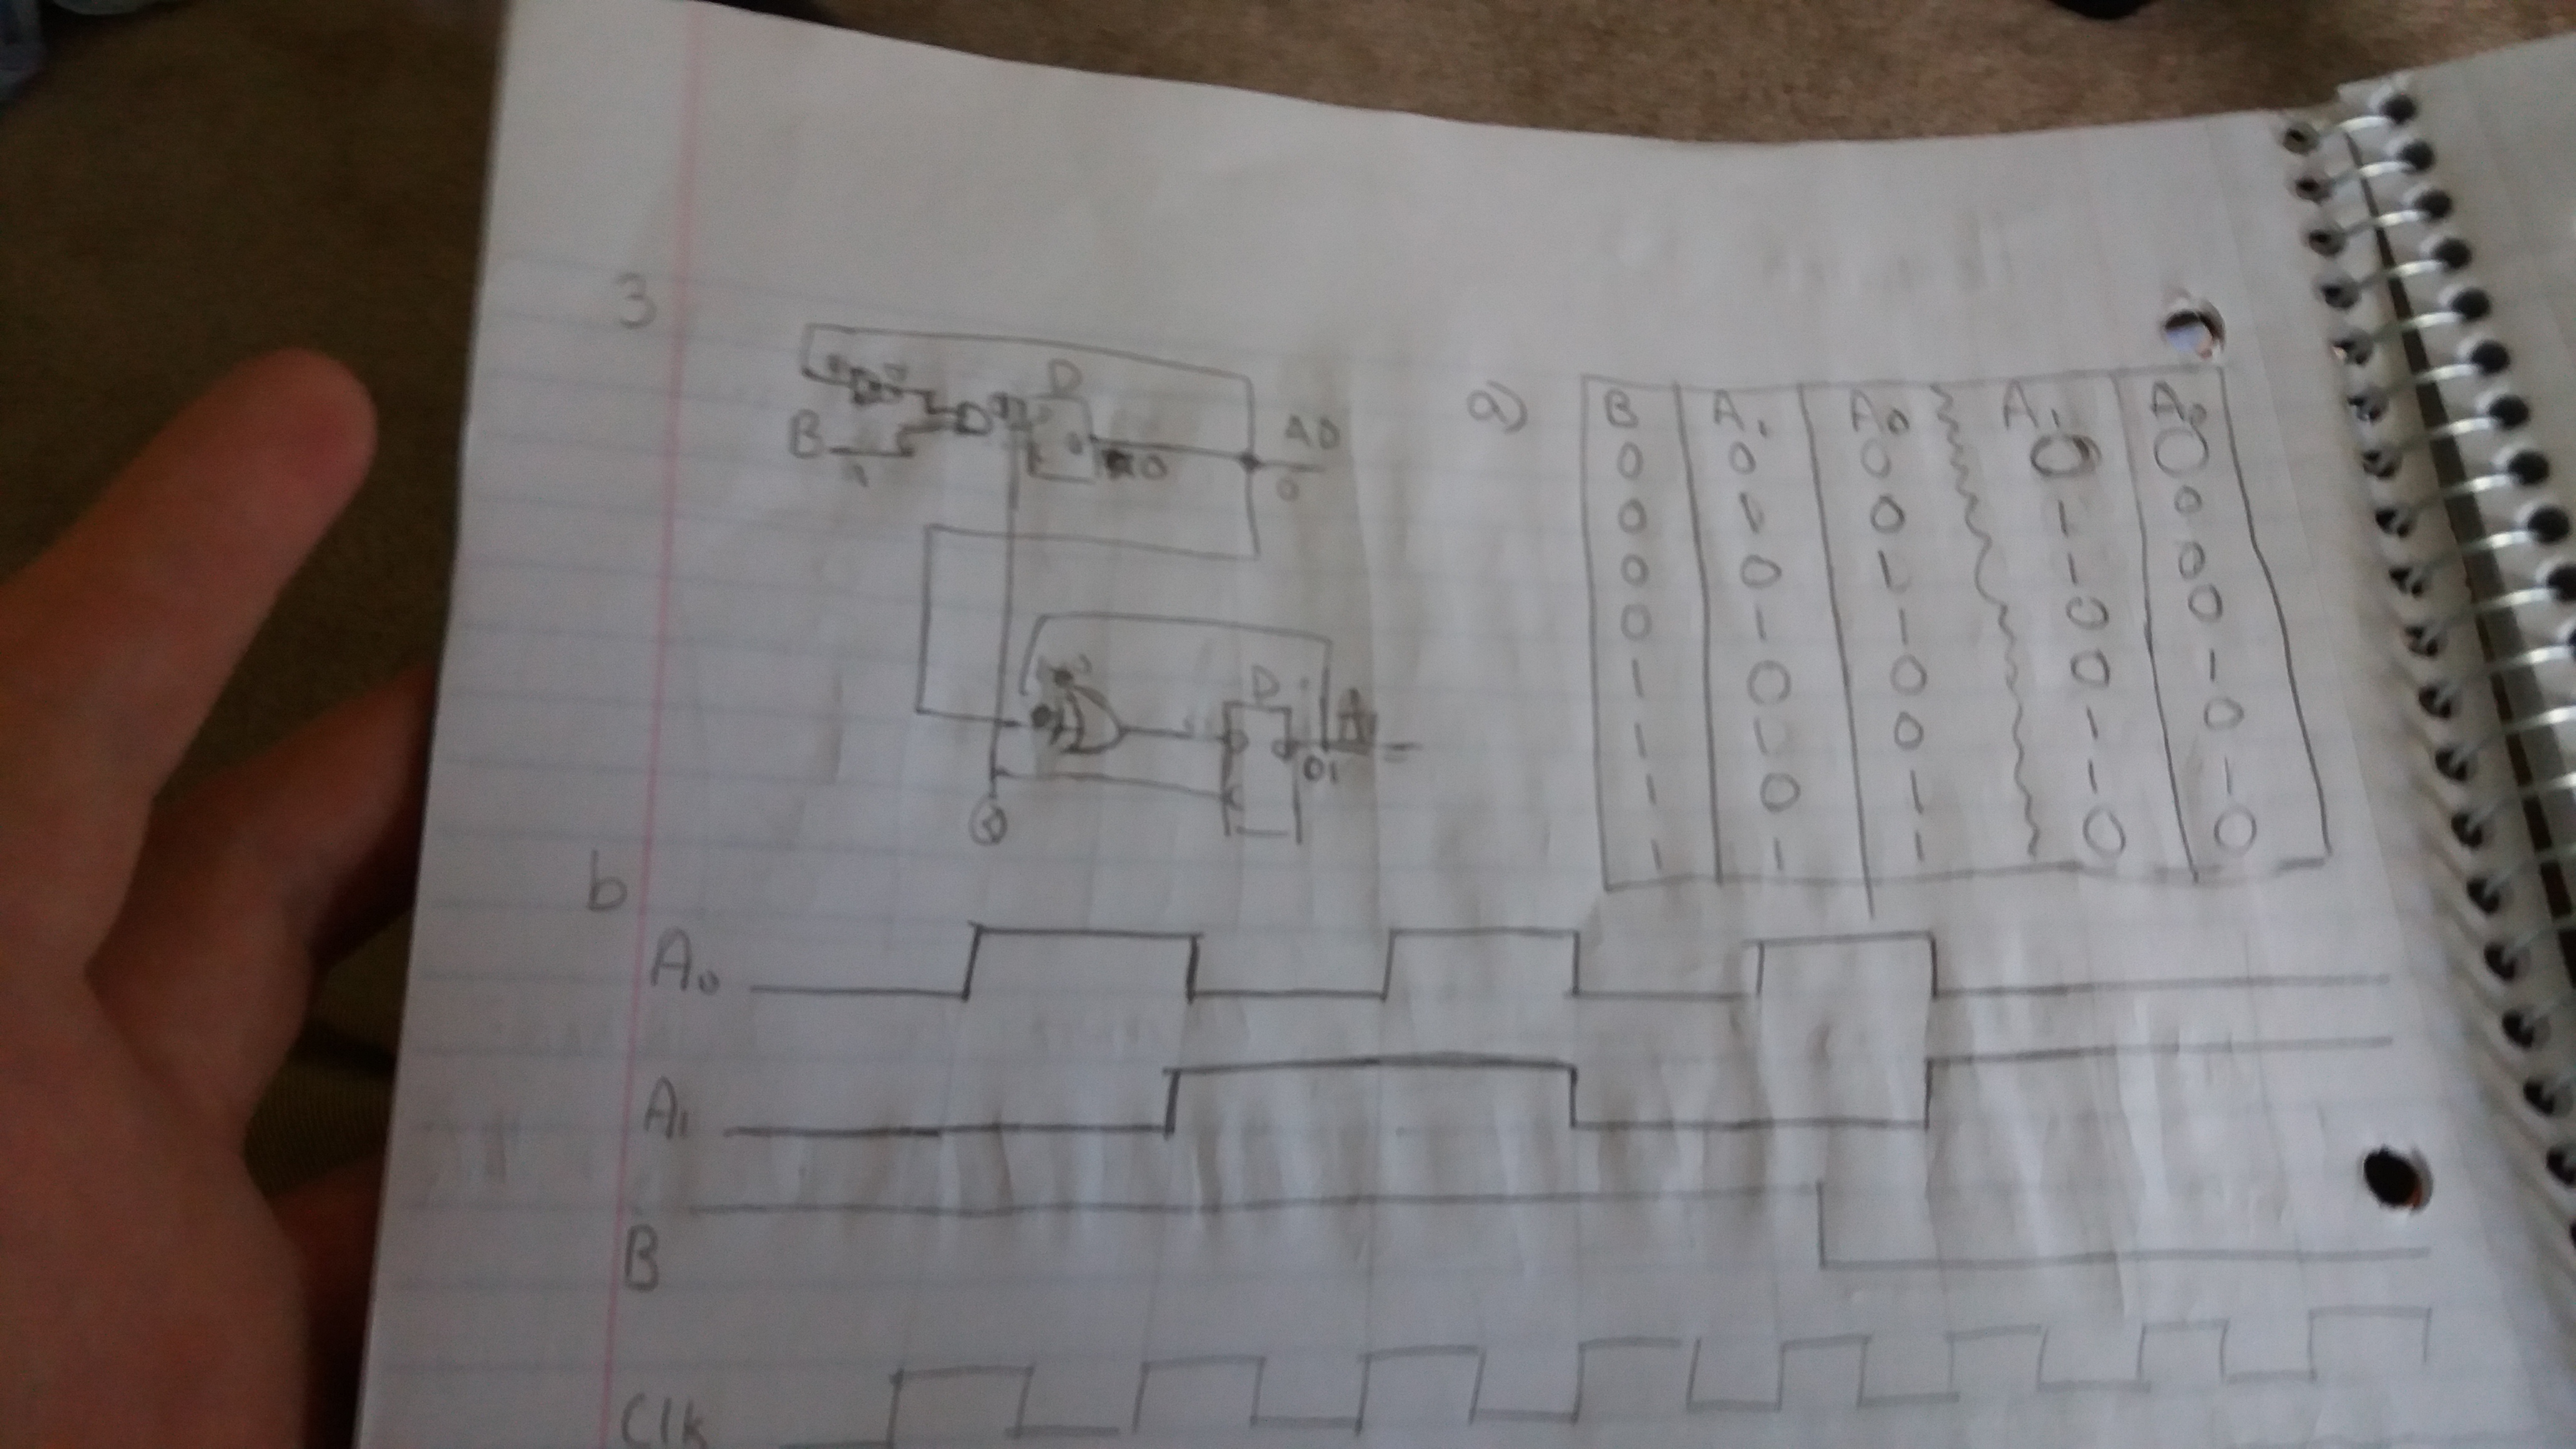 3
D
B
1
A0
0
0
D
01
A1
a)
B A₁ A₀ A₁ A₀
0 0 0 0 0
0 1 0 1 0
0 0 1 1 0
0 1 1 0 0
1 0 0 0 1
1 1 0 1 0
1 0 1 1 1
1 1 1 0 0
b
A₀
A₁
B
Clk